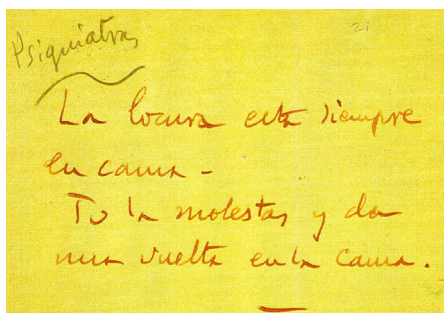 21
Psiquiatras
La locura está siempre
en cama -
Tu la molestas y da
una vuelta en la cama.